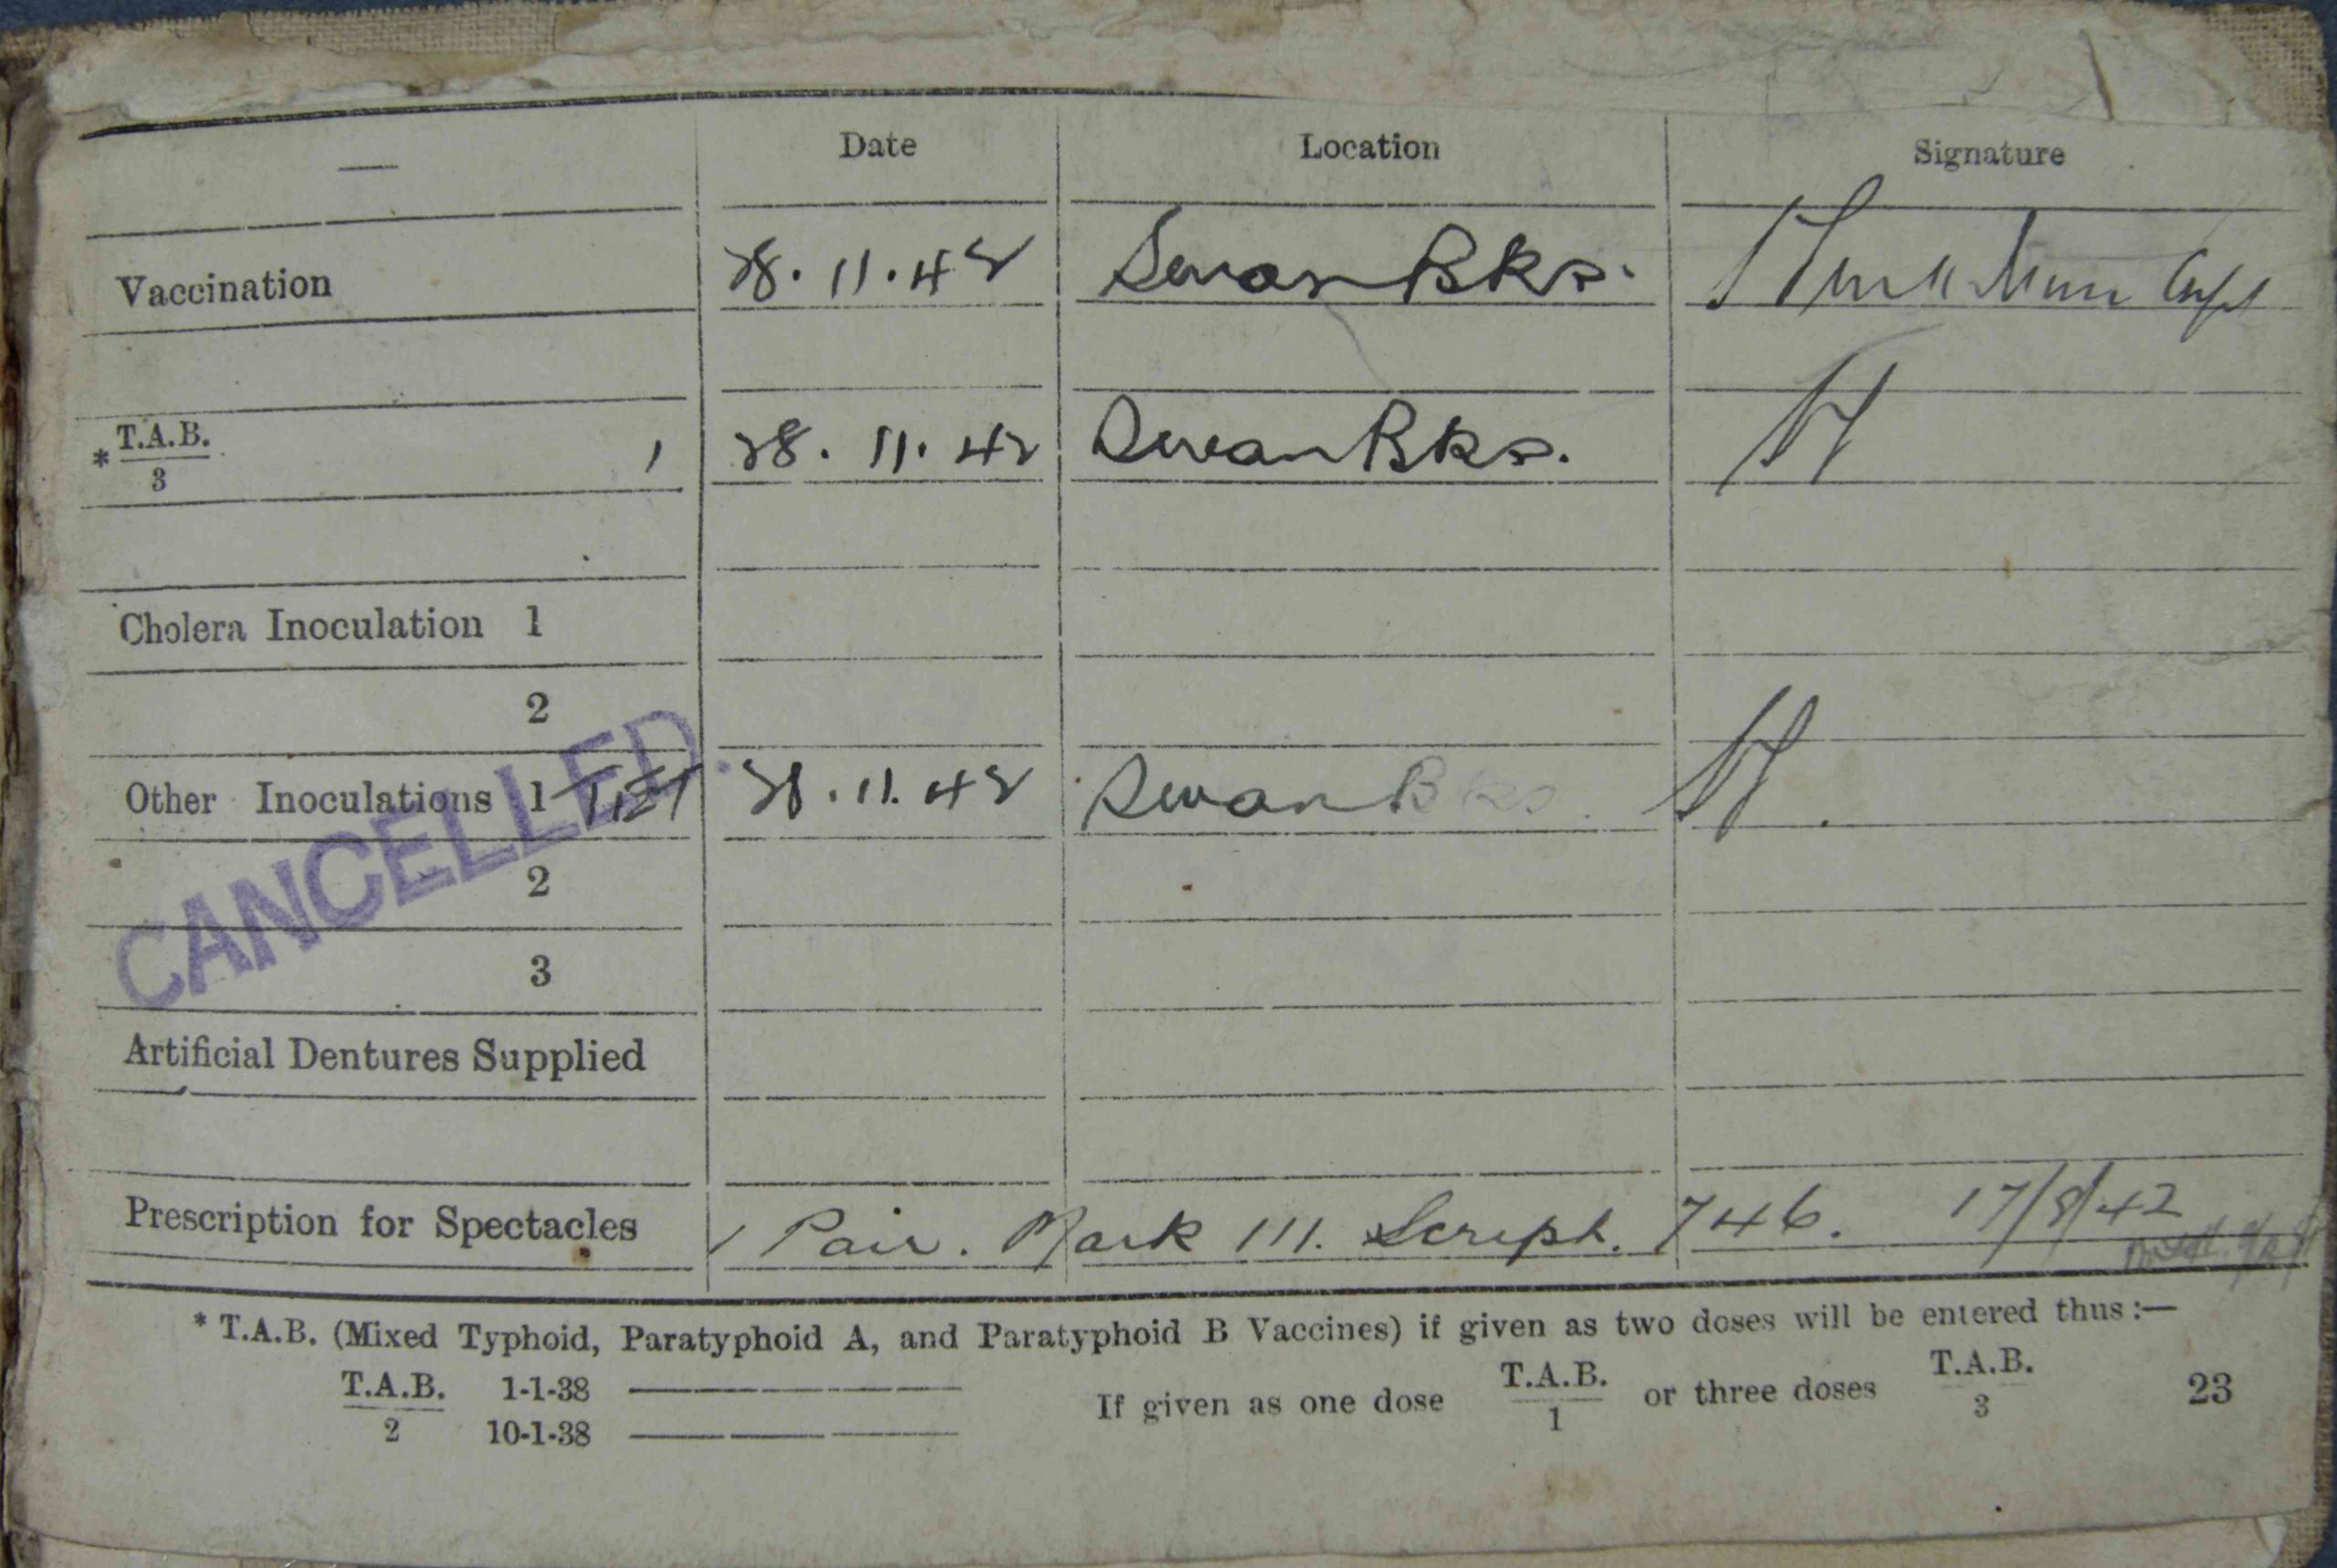 — Date Location Signature
Vaccination 28.11.42 Swan Bks. Capt
* T.A.B. / 3 1 28.11.42 Swan Bks.
Cholera Inoculation 1
2
Other Inoculations 1 28.11.42 Swan Bks.
CANCELLED
2
3
Artificial Dentures Supplied
Prescription for Spectacles 1 Pair. Mark III. Script. 746. 17/8/42
* T.A.B. (Mixed Typhoid, Paratyphoid A, and Paratyphoid B Vaccines) if given as two doses will be entered thus :—
T.A.B. / 2 1-1-38 ——— 10-1-38 ——— If given as one dose T.A.B. / 1 or three doses T.A.B. / 3 23